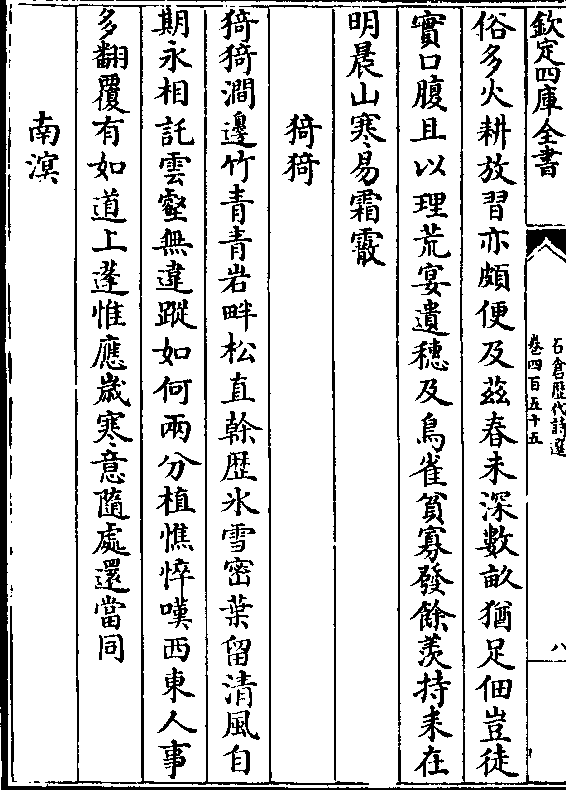 欽定四庫全書
石倉歴代詩選
卷四百五十五
八
俗多火耕放習亦頗便及茲春未深數畝猶足佃豈徒
實口腹且以理荒宴遺穗及鳥雀貧寡發餘羡持耒在
明晨山寒易霜霰
猗猗
猗猗澗邊竹青青岩畔松直幹歴氷雪密葉留清風自
期永相託雲壑無違蹤如何兩分植憔悴嘆西東人事
多翻覆有如道上蓬惟應歲寒意隨處還當同
南溟